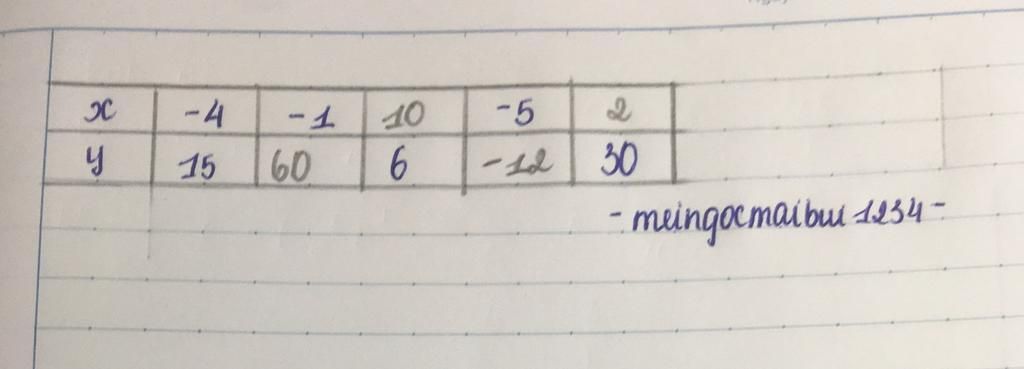 x -4 -1 10 -5 2
y 15 60 6 -12 30